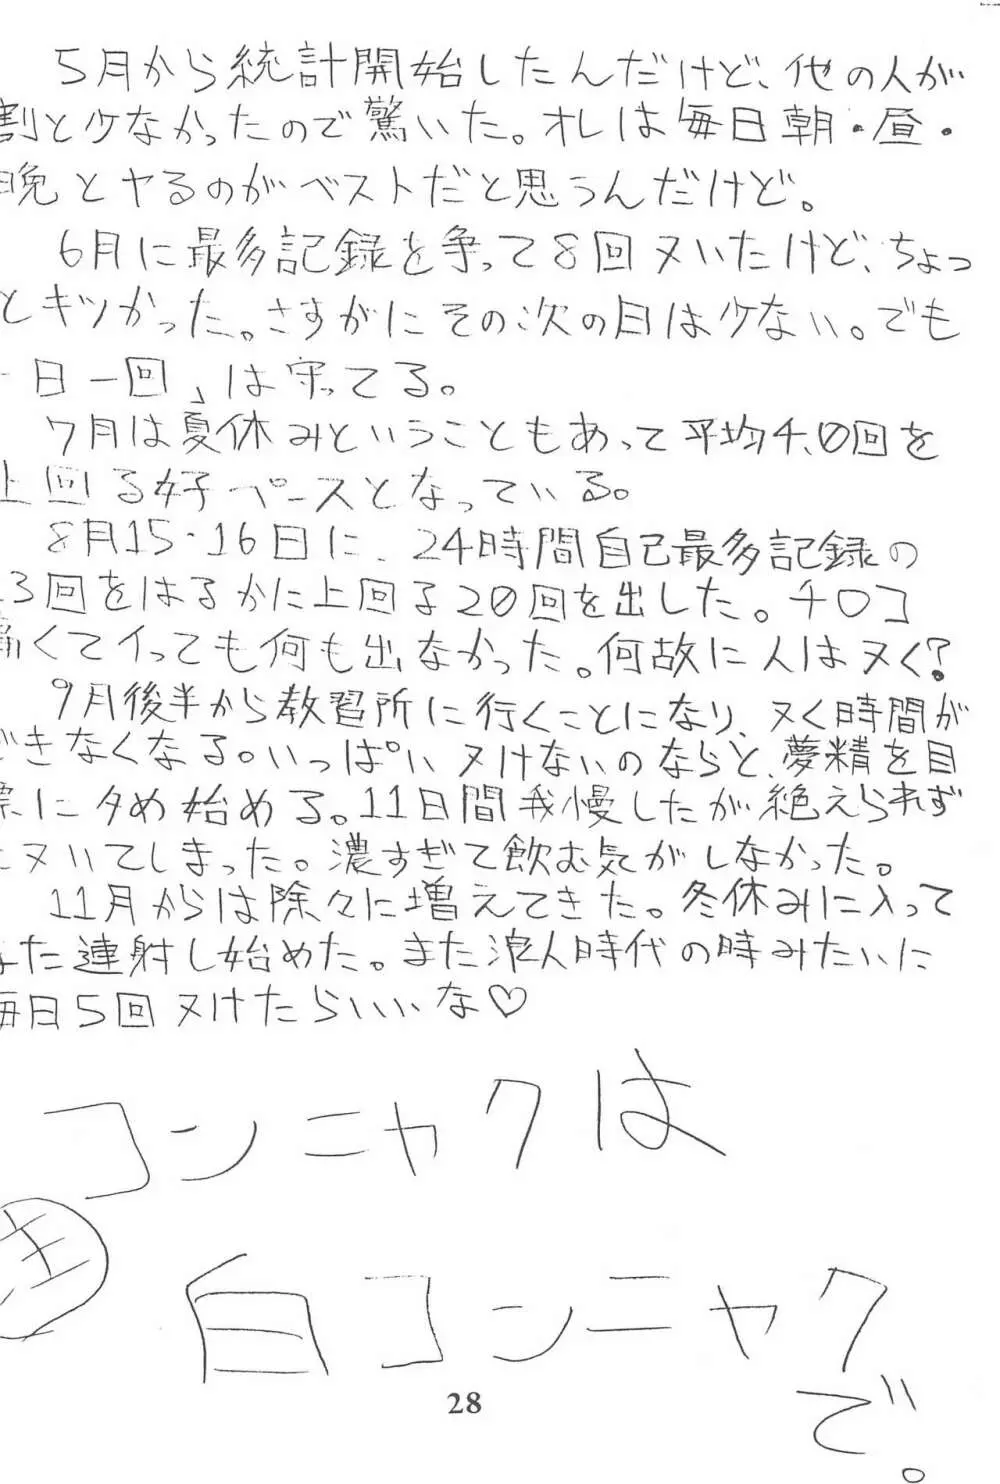 5月から統計開始したんだけど、他の人が
割と少なかったので驚いた。オレは毎日朝・昼・
晩とヤるのがベストだと思うんだけど。
6月に最多記録を争って8回ヌいたけど、ちょっ
とキツかった。さすがにその次の日は少ない。でも
一日一回」は守ってる。
7月は夏休みということもあって平均4.0回を
上回る好ペースとなっている。
8月15・16日に、24時間自己最多記録の
13回をはるかに上回る20回を出した。チ○コ
痛くてイっても何も出なかった。何故に人はヌく?
9月後半から教習所に行くことになり、ヌく時間が
できなくなる。いっぱいヌけないのならと、夢精を目
標にタめ始める。11日間我慢したが絶えられず
にヌいてしまった。濃すぎて飲む気がしなかった。
11月からは除々に増えてきた。冬休みに入って
また連射し始めた。また浪人時代の時みたいに
毎日5回ヌけたらいいな♡
コンニャクは
生
白コンニャク
で。
28